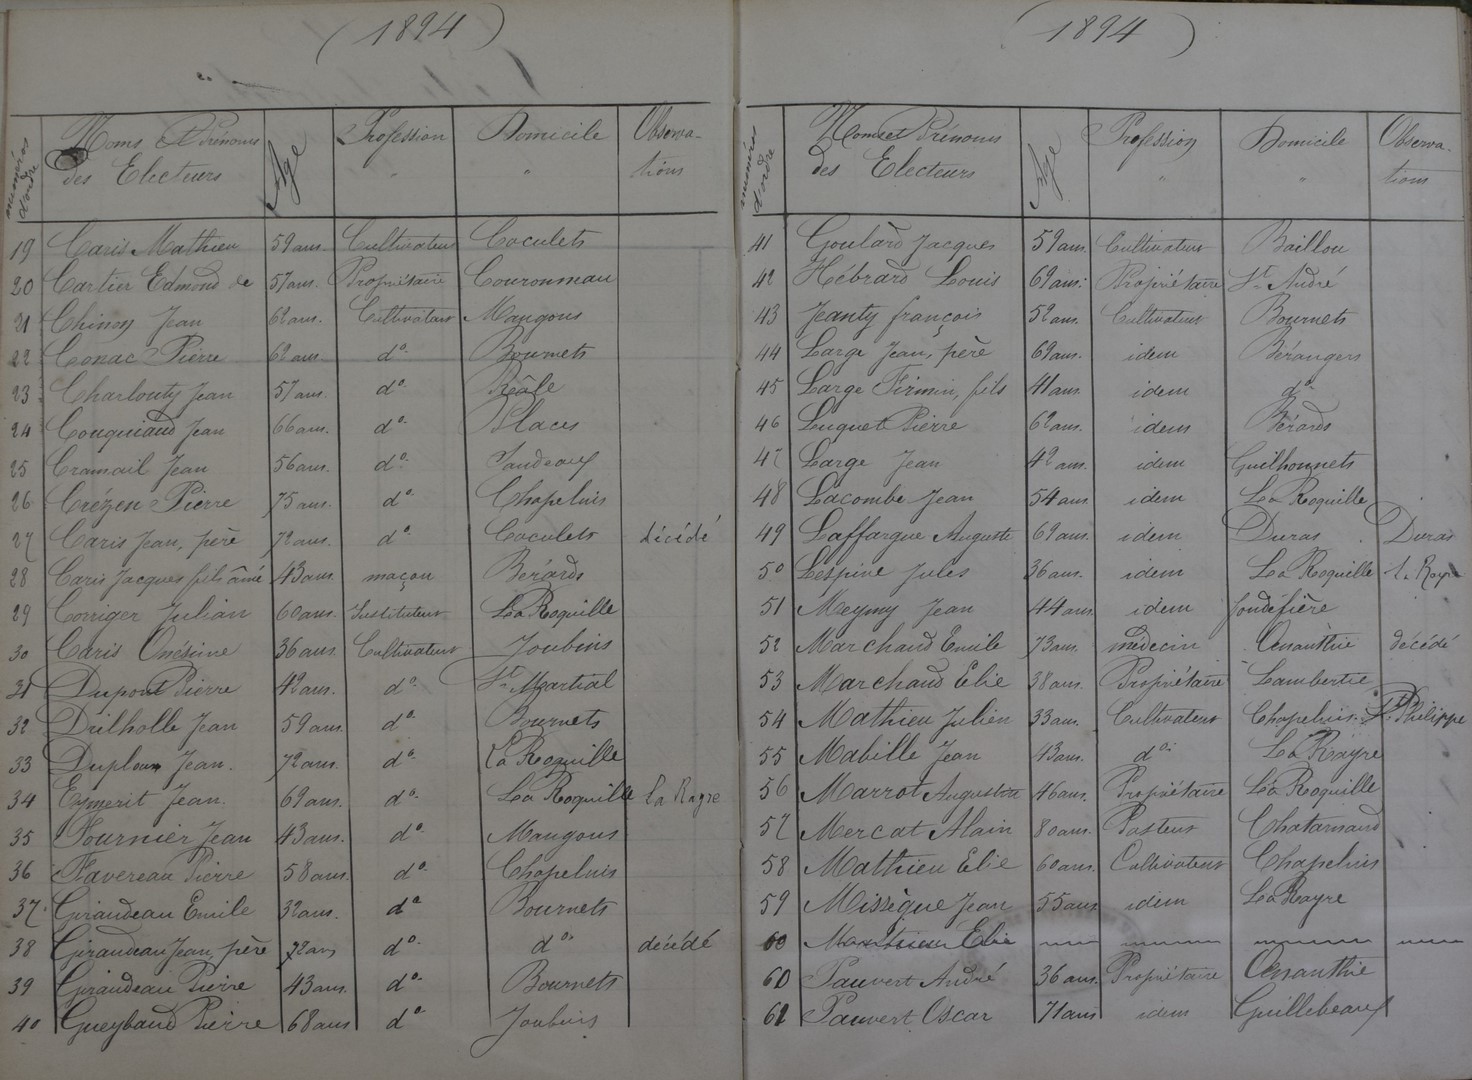 (1894)
numéros d'ordre Noms et Prénoms des Electeurs Age Profession Domicile Observations
19 Caris Mathieu 59 ans. Cultivateur Coculets
20 Cartier Edmond de 57 ans. Propriétaire Couronneau
21 Chinon Jean 62 ans. Cultivateur Maugons
22 Conac Pierre 62 ans d°. Bournets
23 Charlouty Jean 57 ans. d°. Réale
24 Couquiaud Jean 66 ans. d°. Places
25 Cramail Jean 56 ans. d°. Jandeaux
26 Crézen Pierre 75 ans. d° Chapelins
27 Caris Jean, père 72 ans. d°. Coculets décédé
28 Caris Jacques fils aîné 43 ans. maçon Bérards
29 Corriger Julian 60 ans. Instituteur La Roquille
30 Caris Onésime 36 ans. Cultivateur Joubins
31 Dupont Pierre 42 ans. d°. St. Martial
32 Drilholle Jean 59 ans. d°. Bournets
33 Jean. 72 ans. d°. La Roquille
34 Eymerit Jean. 69 ans. d°. La Roquille La Rayre
35 Fournier Jean 43 ans. d°. Maugons
36 Favereau Pierre 58 ans. d°. Chapelins
37 Giraudeau Emile 32 ans. d° Bournets
38 Giraudeau Jean, père 72 ans d°. d°. décédé
39 Giraudeau Pierre 43 ans. d°. Bournets
40 Gueybaud Pierre 68 ans d°. Joubins
(1894)
numéros d'ordre Noms et Prénoms des Electeurs Age Profession Domicile Observations
41 Goulard Jacques 59 ans Cultivateur Baillou
42 Hébrard Louis 69 ans. Propriétaire St. André
43 Jeanty françois 52 ans. Cultivateur Bournets
44 Large Jean, père 69 ans. idem Bérangers
45 Large Firmin, fils 41 ans. idem d°.
46 Luquet Pierre 62 ans. idem Bérards
47 Large Jean 42 ans. idem Guilhonnets
48 Lacombe Jean 54 ans idem La Roquille
49 Laffargue Auguste 62 ans. idem Duras. Duras
50 Lespine Jules 36 ans. idem La Roquille
51 Meymy Jean 44 ans. idem fondéfière
52 Marchand Emile 73 ans. médecin Œnanthie décédé
53 Marchand Elie 38 ans. Propriétaire Lambertie
54 Mathieu Julien 33 ans. Cultivateur Chapelins. St Philippe
55 Mabille Jean 43 ans. d°. La Rayre
56 Marrot Augustin 46 ans. Propriétaire La Roquille
57 Mercat Alain 80 ans. Pasteur Chatarnaud
58 Mathieu Elie 60 ans. Cultivateur Chapelins
59 Missègue Jean 55 ans idem La Rayre
60 Mathieu Elie
60 Pauvert André 36 ans. Propriétaire Œnanthie
62 Pauvert Oscar 71 ans idem Guillebeaux